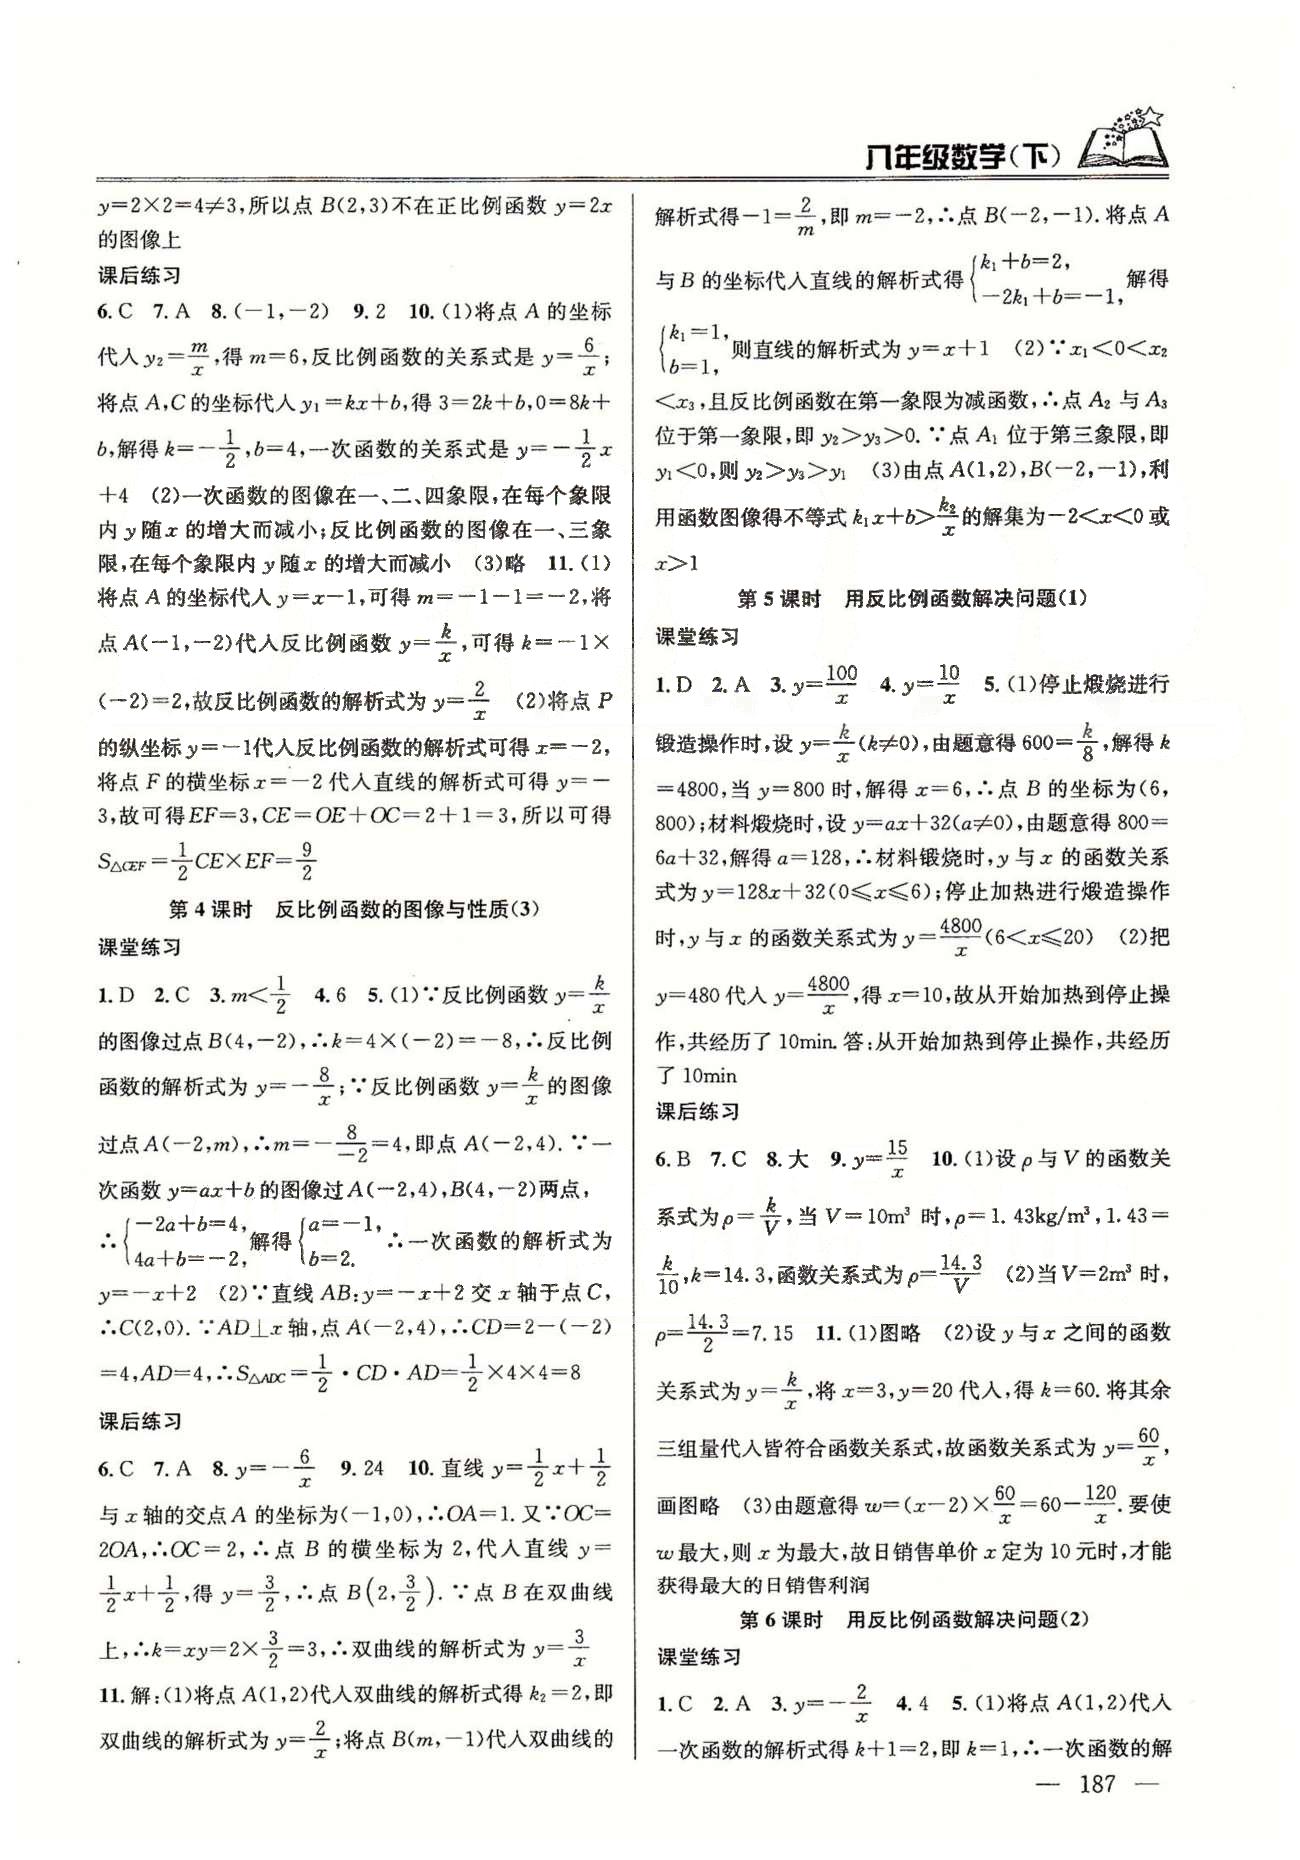 八年级数学(下)
y=2×2=4≠3,所以点 B(2,3)不在正比例函数 y=2x
的图像上
课后练习
6. C 7. A 8. (－1,－2) 9. 2 10. (1)将点 A 的坐标
代入 y₂=m/x,得 m=6,反比例函数的关系式是 y=6/x;
将点 A,C 的坐标代入 y₁=kx+b,得 3=2k+b,0=8k+
b,解得 k=－1/2,b=4,一次函数的关系式是 y=－1/2x
+4 (2)一次函数的图像在一、二、四象限,在每个象限
内 y 随 x 的增大而减小;反比例函数的图像在一、三象
限,在每个象限内 y 随 x 的增大而减小 (3)略 11. (1)
将点 A 的坐标代入 y=x－1,可得 m=－1－1=－2,将
点 A(－1,－2)代入反比例函数 y=k/x,可得 k=－1×
(－2)=2,故反比例函数的解析式为 y=2/x (2)将点 P
的纵坐标 y=－1代入反比例函数的解析式可得 x=－2,
将点 F 的横坐标 x=－2 代入直线的解析式可得 y=－
3,故可得EF=3,CE=OE+OC=2+1=3,所以可得
S△CEF=1/2CE×EF=9/2
第 4 课时 反比例函数的图像与性质(3)
课堂练习
1. D 2. C 3. m<1/2 4. 6 5. (1)∵反比例函数 y=k/x
的图像过点 B(4,－2),∴k=4×(－2)=－8,∴反比例
函数的解析式为 y=－8/x;∵反比例函数 y=k/x的图像
过点 A(－2,m),∴m=－8/－2=4,即点 A(－2,4). ∵一
次函数 y=ax+b 的图像过 A(－2,4),B(4,－2)两点,
∴{－2a+b=4, 4a+b=－2, 解得{a=－1, b=2. ∴一次函数的解析式为
y=－x+2 (2)∵直线 AB:y=－x+2 交 x 轴于点 C,
∴C(2,0). ∵AD⊥x 轴,点 A(－2,4),∴CD=2－(－2)
=4,AD=4,∴S△ADC=1/2·CD·AD=1/2×4×4=8
课后练习
6. C 7. A 8. y=－6/x 9. 24 10. 直线 y=1/2x+1/2
与 x 轴的交点 A 的坐标为(－1,0),∴OA=1. 又∵OC=
2OA,∴OC=2,∴点 B 的横坐标为 2,代入直线 y=
1/2x+1/2,得 y=3/2,∴点 B(2,3/2). ∵点 B 在双曲线
上,∴k=xy=2×3/2=3,∴双曲线的解析式为 y=3/x
11. 解:(1)将点 A(1,2)代入双曲线的解析式得 k₂=2,即
双曲线的解析式为 y=2/x;将点 B(m,－1)代入双曲线的
解析式得－1=2/m,即 m=－2,∴点 B(－2,－1). 将点 A
与 B 的坐标代入直线的解析式得{k₁+b=2, －2k₁+b=－1, 解得
{k₁=1, b=1, 则直线的解析式为 y=x+1 (2)∵x₁<0<x₂
<x₃,且反比例函数在第一象限为减函数,∴点 A₂ 与 A₃
位于第一象限,即 y₂>y₃>0. ∵点 A₁ 位于第三象限,即
y₁<0,则 y₂>y₃>y₁ (3)由点 A(1,2),B(－2,－1),利
用函数图像得不等式 k₁x+b>k₂/x的解集为－2<x<0 或
x>1
第 5 课时 用反比例函数解决问题(1)
课堂练习
1. D 2. A 3. y=100/x 4. y=10/x 5. (1)停止煅烧进行
锻造操作时,设 y=k/x(k≠0),由题意得 600=k/8,解得 k
=4800,当 y=800 时,解得 x=6,∴点 B 的坐标为(6,
800);材料煅烧时,设 y=ax+32(a≠0),由题意得 800=
6a+32,解得 a=128,∴材料锻烧时,y 与 x 的函数关系
式为 y=128x+32(0⩽x⩽6);停止加热进行煅造操作
时,y 与 x 的函数关系式为 y=4800/x(6<x⩽20) (2)把
y=480 代入 y=4800/x,得 x=10,故从开始加热到停止操
作,共经历了 10min. 答:从开始加热到停止操作,共经历
了 10min
课后练习
6. B 7. C 8. 大 9. y=15/x 10. (1)设 ρ 与 V 的函数关
系式为 ρ=k/V,当 V=10m³ 时,ρ=1.43kg/m³,1.43=
k/10,k=14.3,函数关系式为 ρ=14.3/V (2)当 V=2m³ 时,
ρ=14.3/2=7.15 11. (1)图略 (2)设 y 与 x 之间的函数
关系式为 y=k/x,将 x=3,y=20 代入,得 k=60. 将其余
三组量代入皆符合函数关系式,故函数关系式为 y=60/x,
画图略 (3)由题意得 w=(x－2)×60/x=60－120/x. 要使
w 最大,则 x 为最大,故日销售单价 x 定为 10 元时,才能
获得最大的日销售利润
第 6 课时 用反比例函数解决问题(2)
课堂练习
1. C 2. A 3. y=－2/x 4. 4 5. (1)将点 A(1,2)代入
一次函数的解析式得 k+1=2,即 k=1,∴一次函数的解
— 187 —